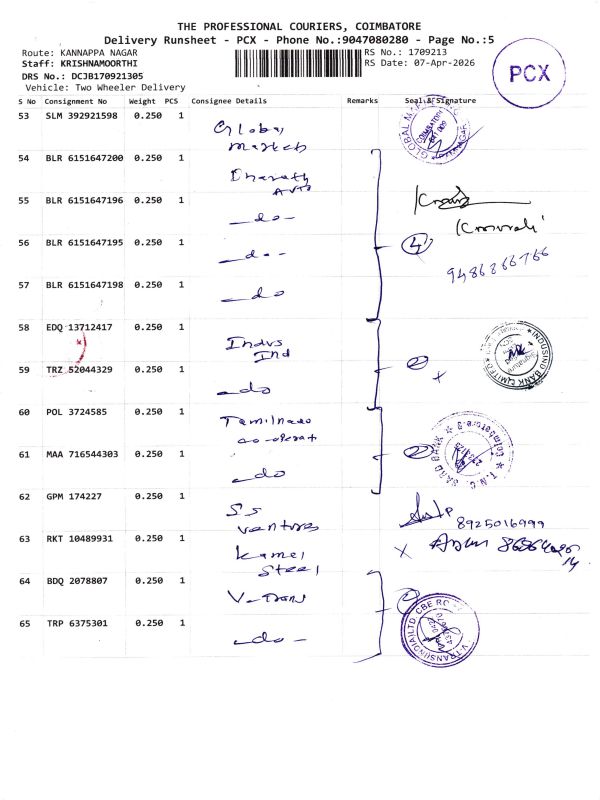 THE PROFESSIONAL COURIERS, COIMBATORE
Delivery Runsheet - PCX - Phone No.:9047080280 - Page No.:5
Route: KANNAPPA NAGAR
RS No.: 1709213
Staff: KRISHNAMOORTHI
RS Date: 07-Apr-2026
DRS No.: DCJB170921305
Vehicle: Two Wheeler Delivery
PCX
S No Consignment No Weight PCS Consignee Details Remarks Seal & Signature
53 SLM 392921598 0.250 1 Global
54 BLR 6151647200 0.250 1 Bharath Auto
55 BLR 6151647196 0.250 1 -do-
56 BLR 6151647195 0.250 1 -do- 4
9486266766
57 BLR 6151647198 0.250 1 -do
58 EDQ 13712417 0.250 1 Indus Ind
INDUSIND BANK LIMITED
59 TRZ 52044329 0.250 1 -do 2 x
60 POL 3724585 0.250 1 Tamilnadu co-operat
61 MAA 716544303 0.250 1 -do 2
62 GPM 174227 0.250 1 SS ventures
8925016999
63 RKT 10489931 0.250 1 Kamel Steel x
64 BDQ 2078807 0.250 1 V-Trans 2
V-TRANS(INDIA)LTD CBE
65 TRP 6375301 0.250 1 -do-